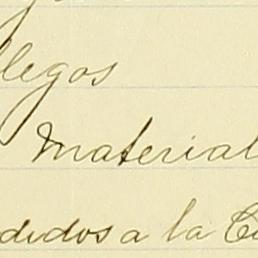 llegos
Material
didos a la